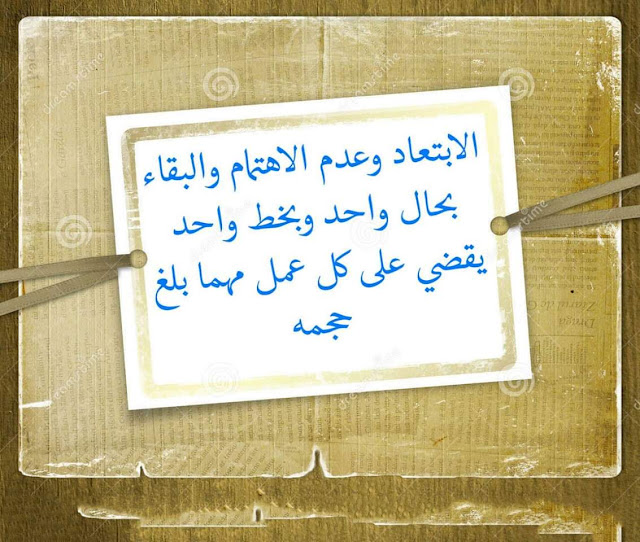 الابتعاد وعدم الاهتمام والبقاء
بحال واحد وبخط واحد
يقضي على كل عمل مهما بلغ
حجمه